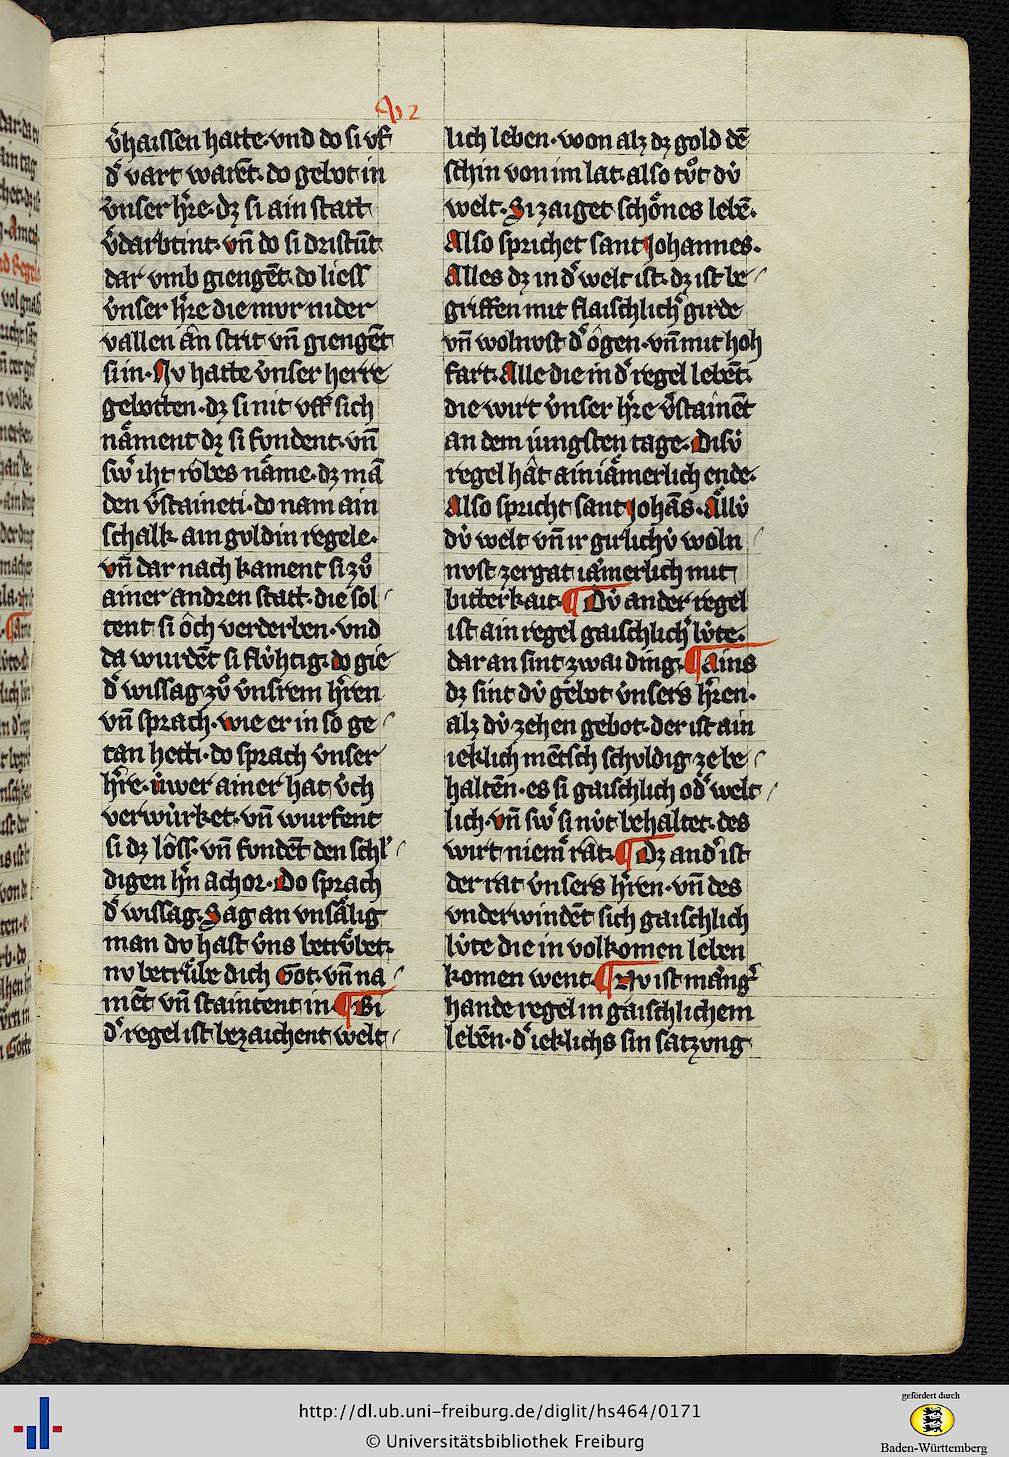 v̾haissen hatte· vnd do si vf
d̾ vart warēt· do gebot in
v̇nser hre· dz si ain statt
v̾darbtint· vn̄ do si dristūt
dar vmb giengēt· do liess
v̇nser hre die mvr nider
vallen ân strit vn̄ giengēt
si in· Nv hatte v̇nser herre
gebotten· dz si nit vff sich
nåment dz si fvndent· vn̄
sw̾ iht robes nåme· dz mā
den v̾staineti· do nam ain
schalk ain gvldin regele·
vn̄ dar nach kament si zů
ainer andren statt· die sol
tent si ôch verderben· vnd
da wurdēt si flv̇htig· do gie
d̾ wissag zů v̇nsrem hren
vn̄ sprach· wie er in so ge
tan hetti· do sprach v̇nser
hre· ůwer ainer hat v̇ch
verwu̇rket· vn̄ wurfent
si dz lôss· vn̄ fvndēt den schl̾
digen hn̄ achor· Do sprach
d̾ wissag· Sag an vnsålig
man dv hast v̇ns betru̇bet·
nv betru̇be dich Got· vn̄ na
mēt vn̄ staintent in ¶ Bi
d̾ regel ist bezaichent welt
A12
lich leben· won alz dz gold dē
schin von im lat· also tůt dv̇
welt· Si zaiget schȯnes lebē·
Also sprichet sant Johannes·
Alles dz in d̾ welt ist· dz ist be
griffen mit flaischlich̾ girde
vn̄ wolnvst d̾ ôgen· vn̄ mit hoh
fart· Alle die in d̾ regel lebēt·
die wirt v̇nser hre v̾stainēt
an dem iu̇ngsten tage· Disv̇
regel hât ain iåmerlich ende·
Also spricht sant Johās· Allv̇
dv̇ welt vn̄ ir girlichv̇ woln
nvst zergat iåmerlich mit
bitterkait· ¶ Dv̇ ander regel
ist ain regel gaischlich̾ lv̇te·
dar an sint zwai ding· ¶ Ains
dz sint dv̇ gebot v̇nsers hren·
alz dv̇ zehen gebot· der ist ain
ieklich mētsch schvldig ze be
haltēn· es si gaischlich od̾ welt
lich· vn̄ sw̾ si nv̇t behaltet· des
wirt niem̾ rât· ¶ Dz and̾ ist
der rat v̇nsers hren· vn̄ des
vnderwindēt sich gaischlich
lv̇te die in volkomen leben
komen went· ¶ Nv ist mȧng̾
hande regel in gaischlichem
lebēn· d̾ ieklichs sin satzvng
http://dl.ub.uni-freiburg.de/diglit/hs464/0171
© Universitätsbibliothek Freiburg
gefördert durch
Baden-Württemberg